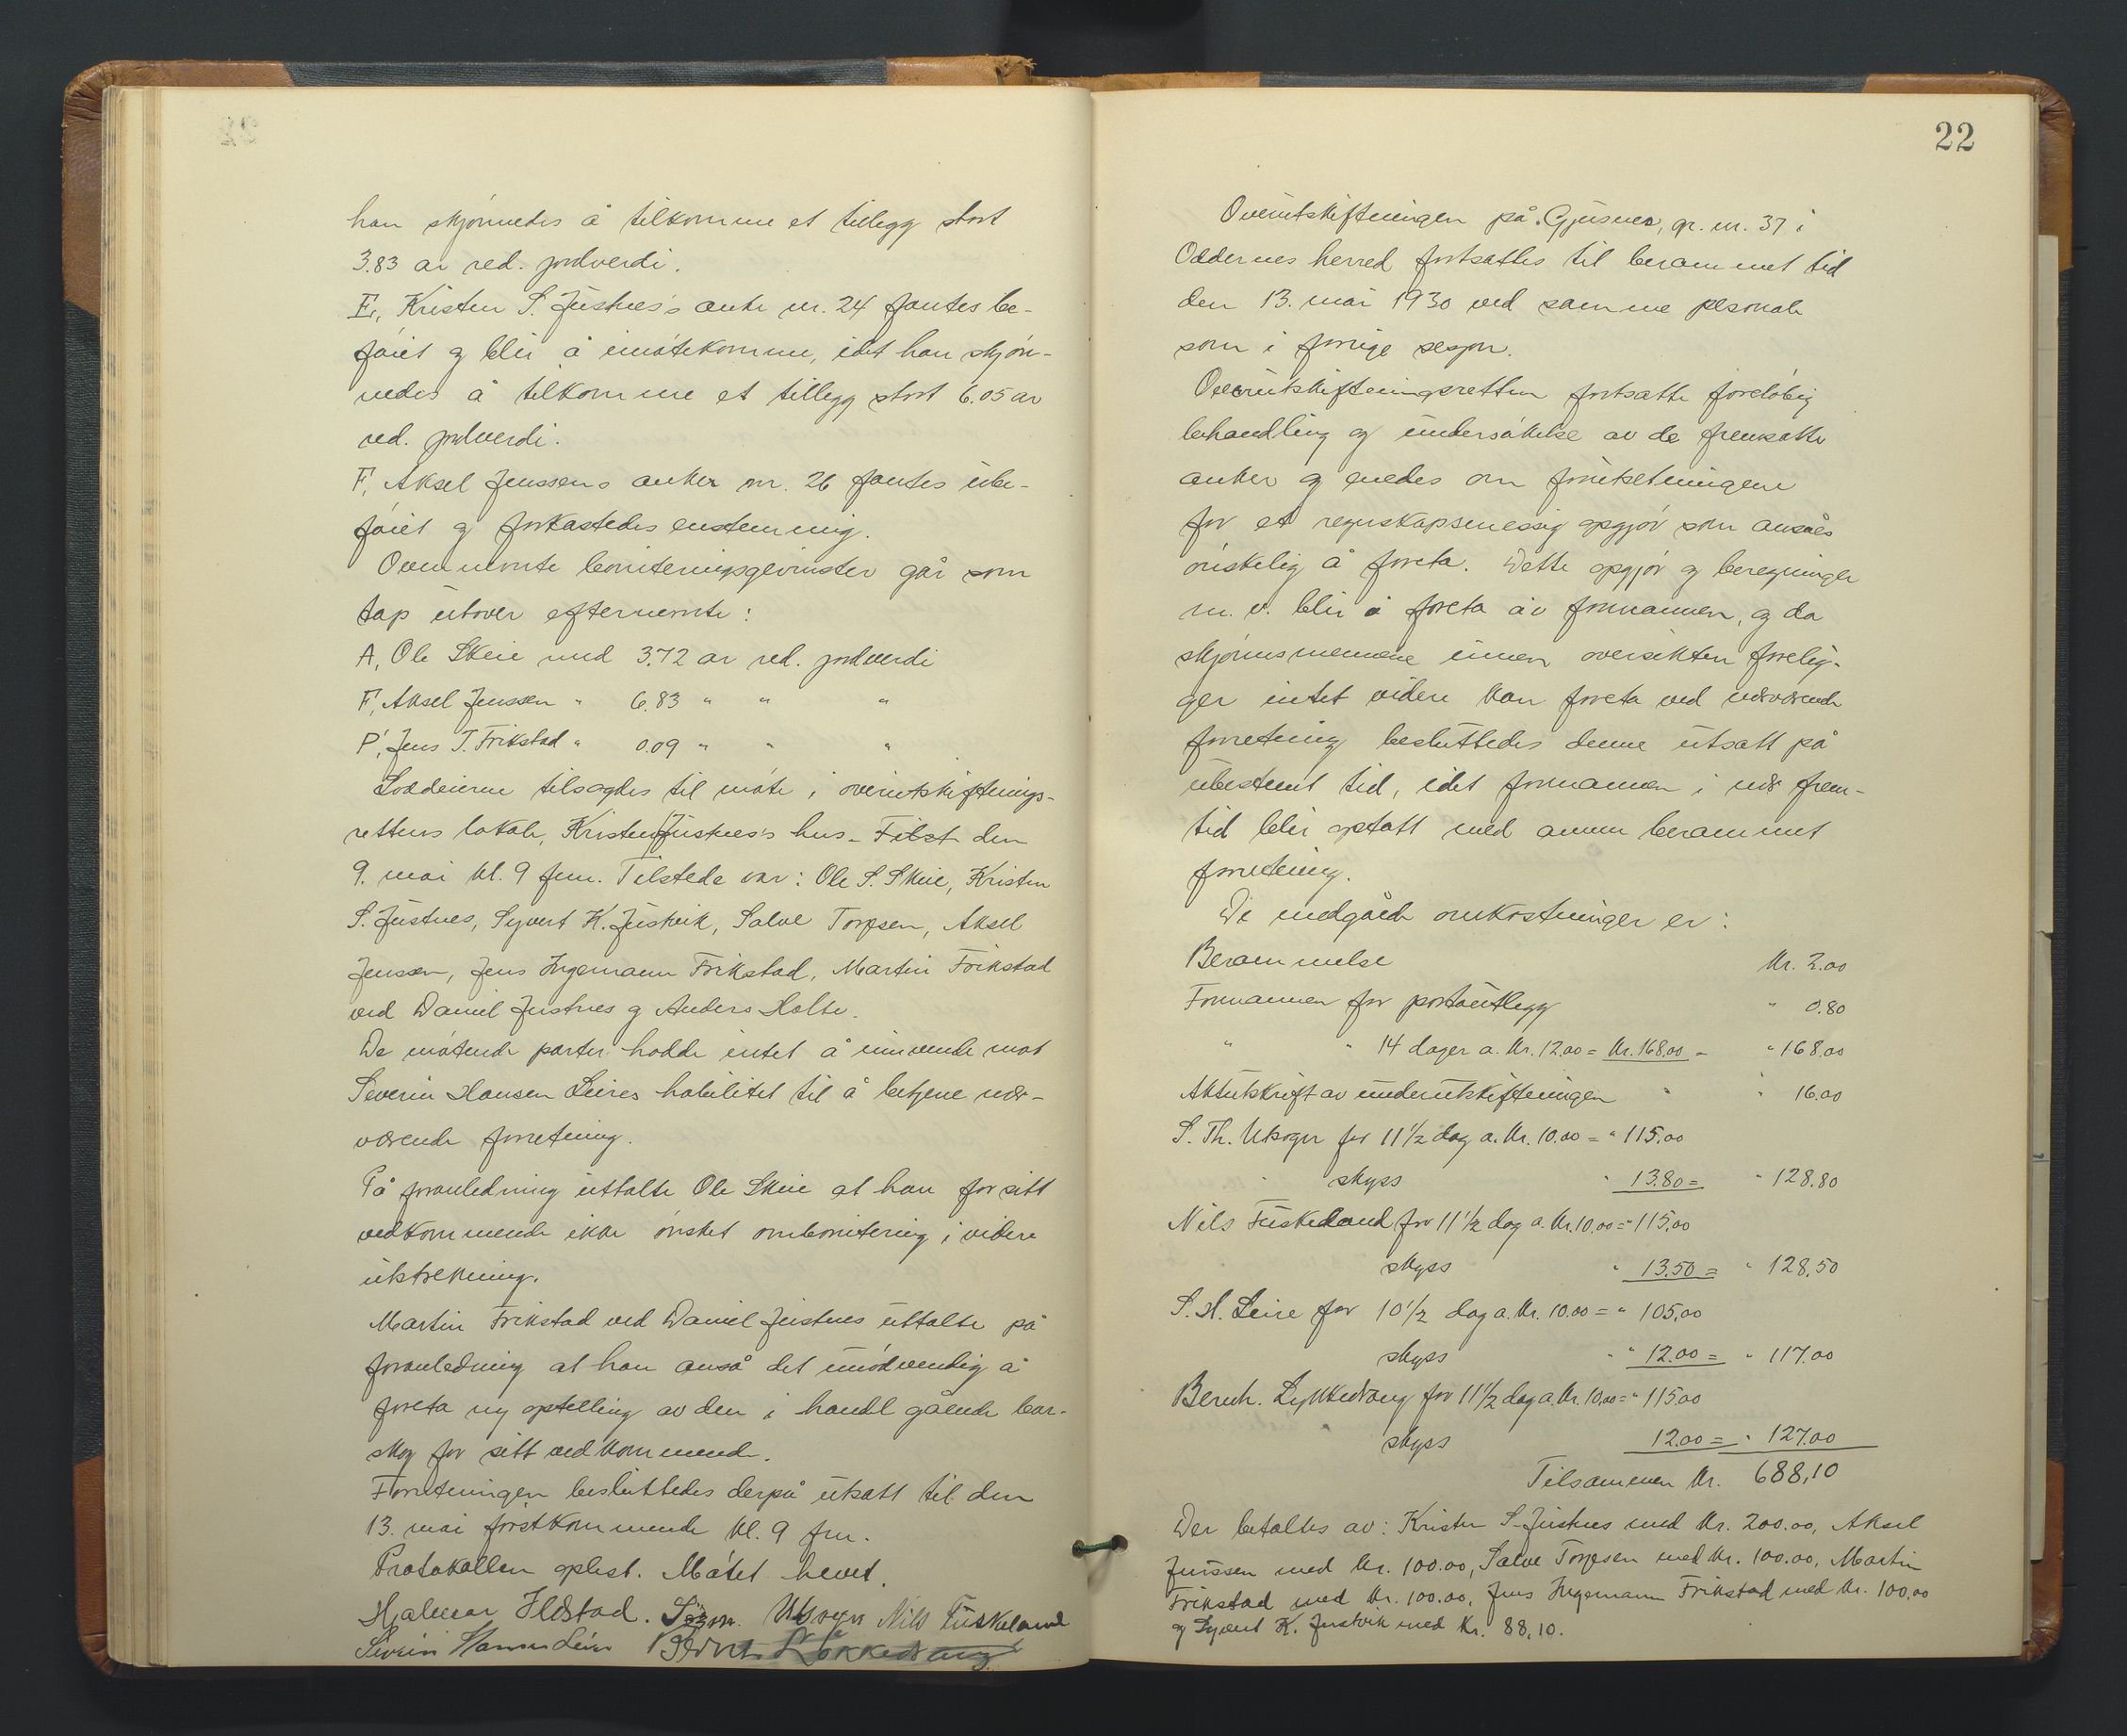 han skjønnedes å tilkomme et tillegg stort
3.83 ar red. jordverdi.
E, Kristen S. Justnes's anke nr. 24 fantes be-
føiet og blir å imøtekomme, idet han skjøn-
nedes å tilkomme et tillegg stort 6.05 ar
red. jordverdi.
F, Aksel Jenssens anker nr. 26 fantes ube-
føiet og forkastedes enstemmig.
Ovennevnte boniteringsgevinster går som
tap utover efternevnte:
A, Ole Skeie med 3.72 ar red. jordverdi
F, Aksel Jenssen " 6.83 " " "
P, Jens T. Frikstad " 0.09 " " "
Loddeierne tilsagdes til møte i overutskiftnings-
rettens lokale, Kristen Justnes's hus - Filst den
9. mai kl. 9 fm. Tilstede var: Ole S. Skeie, Kristen
S. Justnes, Syvert K. Justvik, Salve Torjesen, Aksel
Jenssen, Jens Ingemann Frikstad, Martin Frikstad
ved Daniel Justnes og Anders Holte.
De møtende parter hadde intet å innvende mot
Severin Hansen Leires habilitet til å betjene nær-
værende forretning.
På foranledning uttalte Ole Skeie at han for sitt
vedkommende ikke ønsket ombonitering i videre
utstrekning.
Martin Frikstad ved Daniel Justnes uttalte på
foranledning at han anså det unødvendig å
foreta ny optelling av den i handl gående bar-
skog for sitt vedkommende.
Forretningen besluttedes derpå utsatt til den
13. mai førstkommende kl. 9 fm.
Protokollen oplest. Møtet hevet.
Hjalmar Ildstad. Sigm. Utsogn Nils Fuskeland
Severin Hansen Leire Bernt Lykkedrang
22
Overutskiftningen på Gjusnes, gr. nr. 37 i
Oddernes herred fortsattes til berammet tid
den 13. mai 1930 ved samme pesonale
som i forrige sesjon.
Overutskiftningsretten fortsatte foreløbig
behandling og undersøkelse av de fremsatte
anker og enedes om forutsetningene
for et regnskapsmessig opgjør som ansåes
ønskelig å foreta. Dette opgjør og beregninger
m. v. blir å foreta av formannen, og da
skjønnsmennene innen oversikten forelig-
ger intet videre kan foreta ved nærværende
forretning besluttedes denne utsatt på
ubestemt tid, idet formannen i nær frem-
tid blir optatt med annen berammet
forretning.
De medgåede omkostninger er:
Berammelse kr. 2.00
Formannen for portoutlegg " 0.80
" " 14 dager a. kr. 12.00 = kr. 168.00 = " 168.00
Aktutskrift av underutskiftningen " " 16.00
S. Th. Utsogn for 11 1/2 dag a. kr. 10.00 = " 115.00
" skyss " 13.80 = " 128.80
Nils Fuskeland for 11 1/2 dag a. kr. 10.00 = " 115.00
skyss " 13.50 = " 128.50
S. H. Leire for 10 1/2 dag a. kr. 10.00 = " 105.00
skyss " " 12.00 = " 117.00
Bernh. Lykkedrang for 11 1/2 dag a. kr. 10.00 = " 115.00
" skyss 12.00 = " 127.00
Tilsammen kr. 688.10
Der betaltes av: Kristen S. Justnes med kr. 200.00, Aksel
Jenssen med kr. 100.00, Salve Torjesen med kr. 100.00, Martin
Frikstad med kr. 100.00, Jens Ingemann Frikstad med kr. 100.00
og Syvert K. Justvik med kr. 88.10.